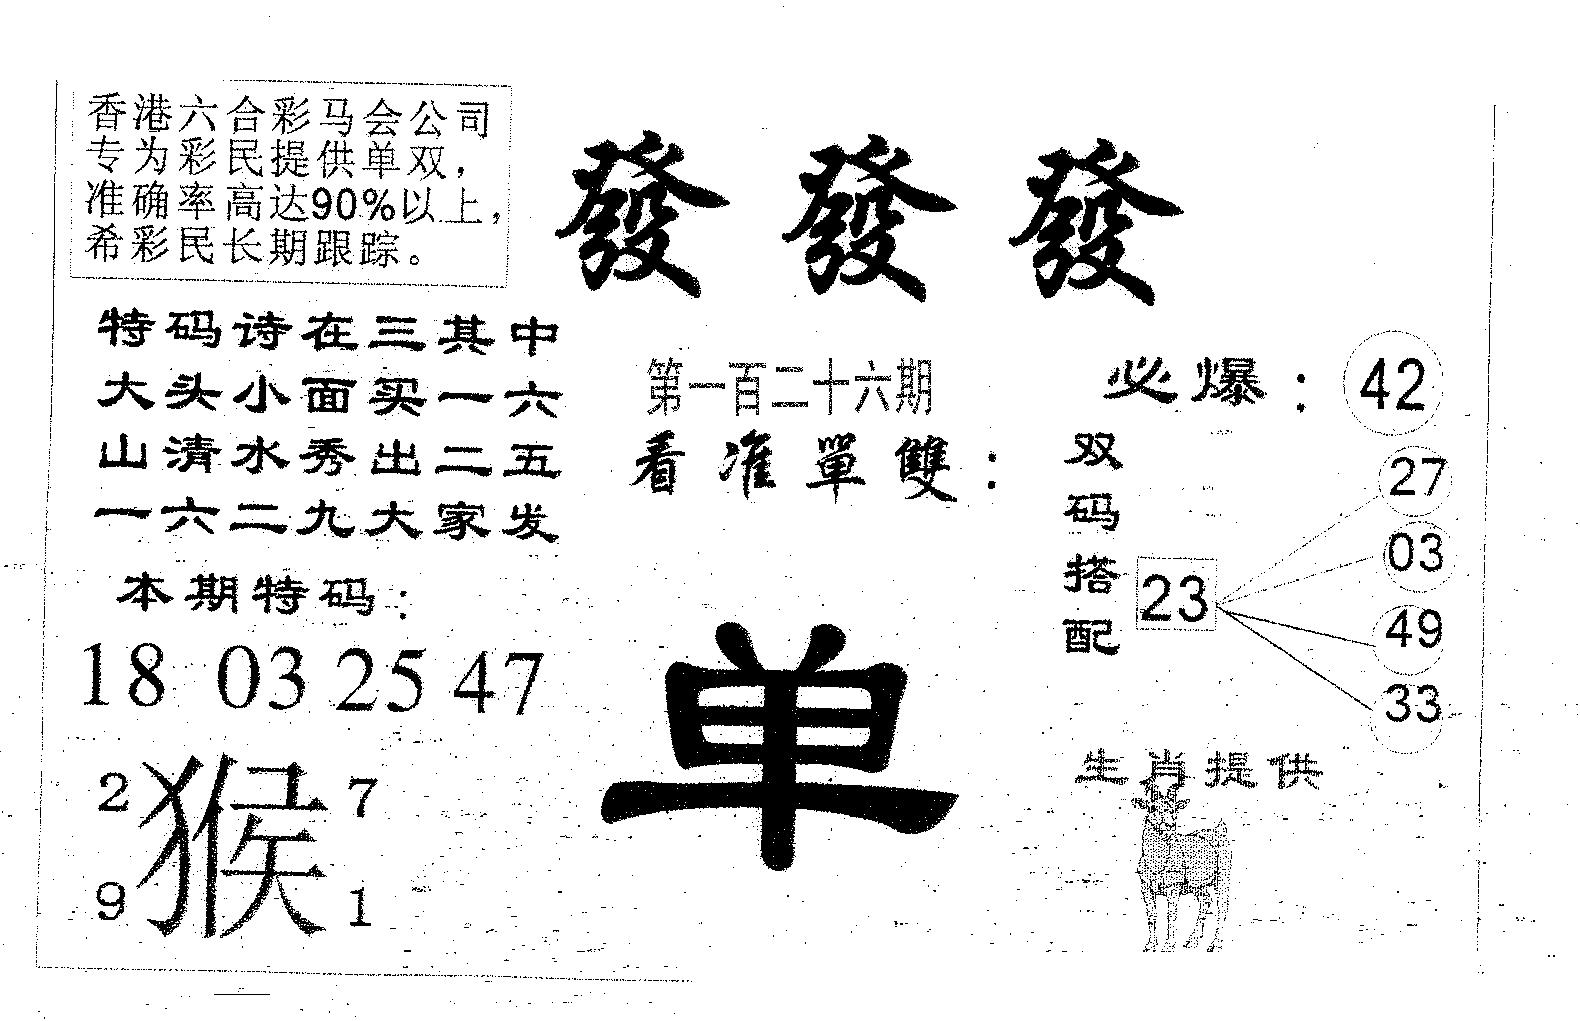 香港六合彩马会公司
专为彩民提供单双，
准确率高达90%以上，
希彩民长期跟踪。
發 發 發
特码诗在三其中
大头小面买一六
山清水秀出二五
一六二九大家发
本期特码：
18 03 25 47
2 猴 7
9 1
第一百二十六期
看准單雙：
单
必爆：42
双码搭配
23
27
03
49
33
生肖提供